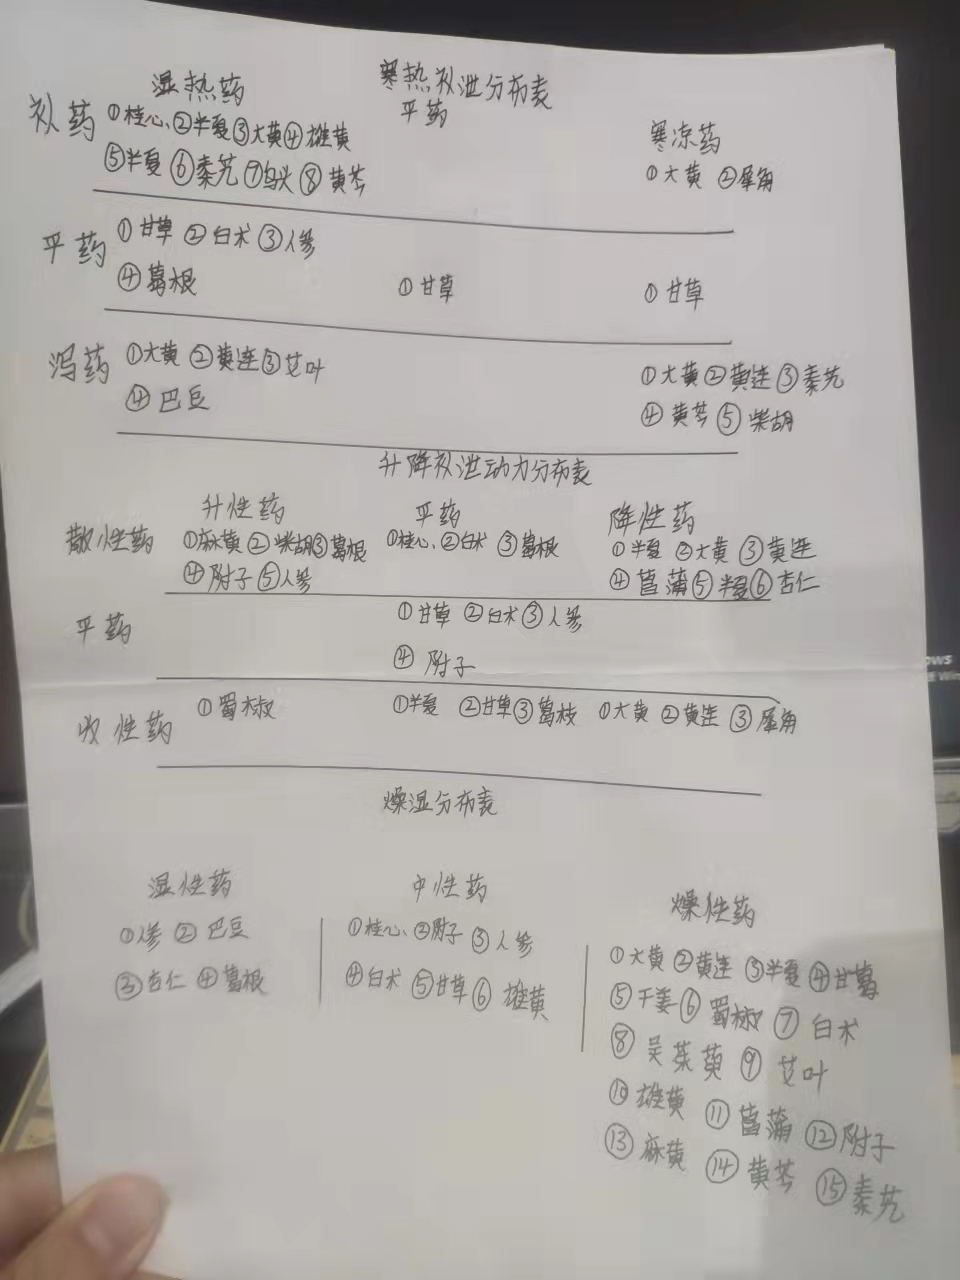 寒热补泄分布表
湿热药
平药
寒凉药
补药
①桂心、②半夏③大黄④雄黄
⑤半夏⑥秦艽⑦乌头⑧黄芩
①大黄 ②犀角
平药
①甘草 ②白术 ③人参
④葛根
①甘草
①甘草
泻药
①大黄 ②黄连③艾叶
④巴豆
①大黄②黄连③秦艽
④黄芩⑤柴胡
升降补泄动力分布表
升性药
平药
降性药
散性药
①麻黄②柴胡③葛根
④附子⑤人参
①桂心、②白术 ③葛根
①半夏 ②大黄 ③黄连
④菖蒲⑤半夏⑥杏仁
平药
①甘草 ②白术③人参
④附子
收性药
①蜀椒
①半夏 ②甘草③葛枝
①大黄 ②黄连 ③犀角
燥湿分布表
湿性药
中性药
燥性药
①人参 ②巴豆
③杏仁 ④葛根
①桂心、②附子 ③人参
④白术 ⑤甘草⑥雄黄
①大黄②黄连③半夏④甘葛
⑤干姜⑥蜀椒⑦白术
⑧吴茱萸⑨艾叶
⑩雄黄⑪菖蒲⑫附子
⑬麻黄⑭黄芩⑮秦艽